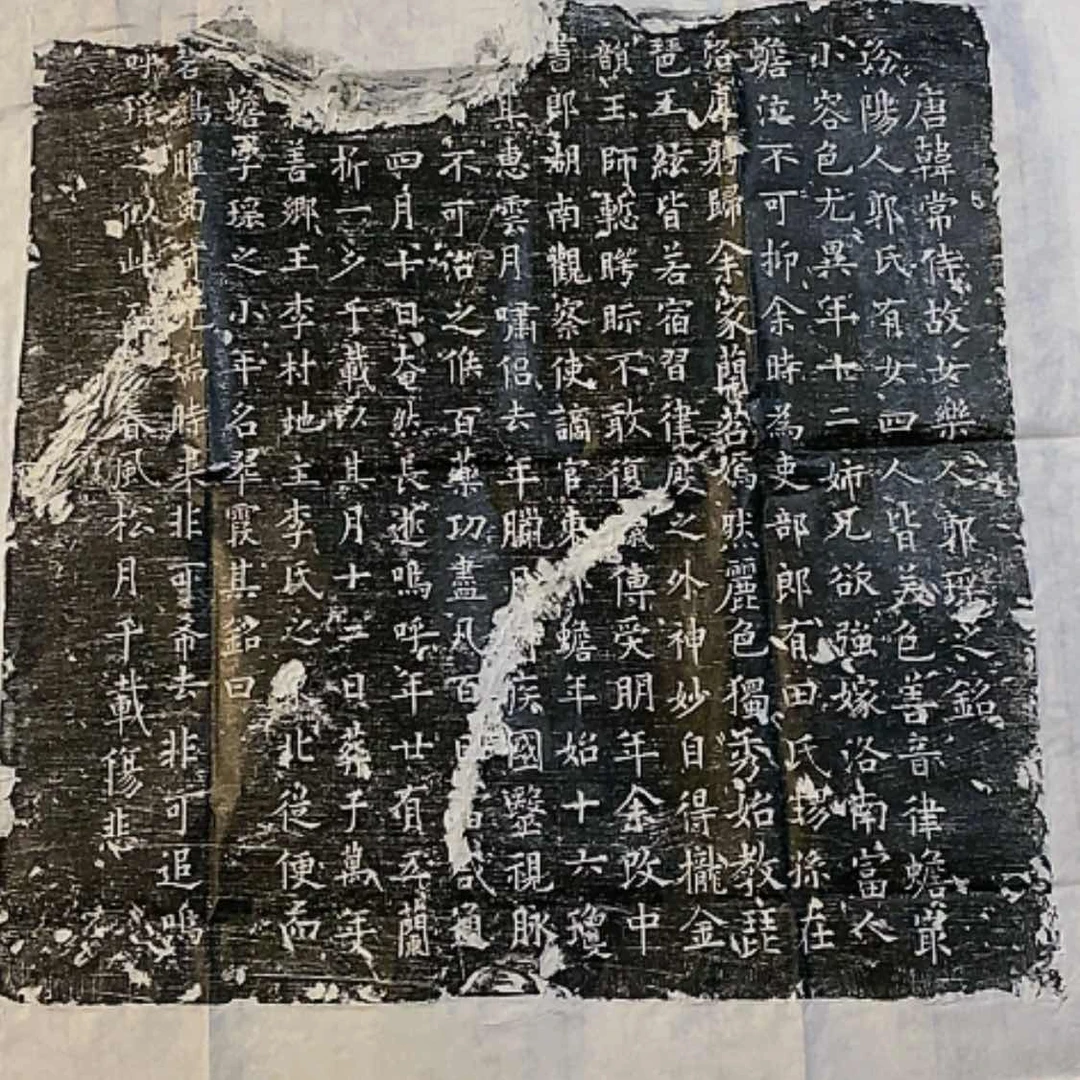 唐韓常侍故女樂人郭瑶之銘
汾陽人郭氏有女四人皆美色善音律蟾最
小容色尤異年十二姉兄欲強嫁洛南富人
蟾泣不可抑余時為吏部郎有田氏揚孫在
洛虞躬歸余家蘭若嫣然麗色獨秀始教琵
琶玉絃皆若宿習律度之外神妙自得攏金
韻王師眎不敢復傳受明年余改中
書郎湖南觀察使謫官東蟾年始十六瓊
其惠雲月嘯侶去年臘月疾國毉視脉
不可治之候百藥功盡凡百日
四月十日奄然長逝嗚呼年廿有五蘭
折一夕千載以其月十二日葬于萬年
善鄉王李村地主李氏之北從便而
蟾字瑶之小年名翠霞其銘曰
瑞時来非可去非可追嗚
呼瑶之似此春風松月千載傷悲